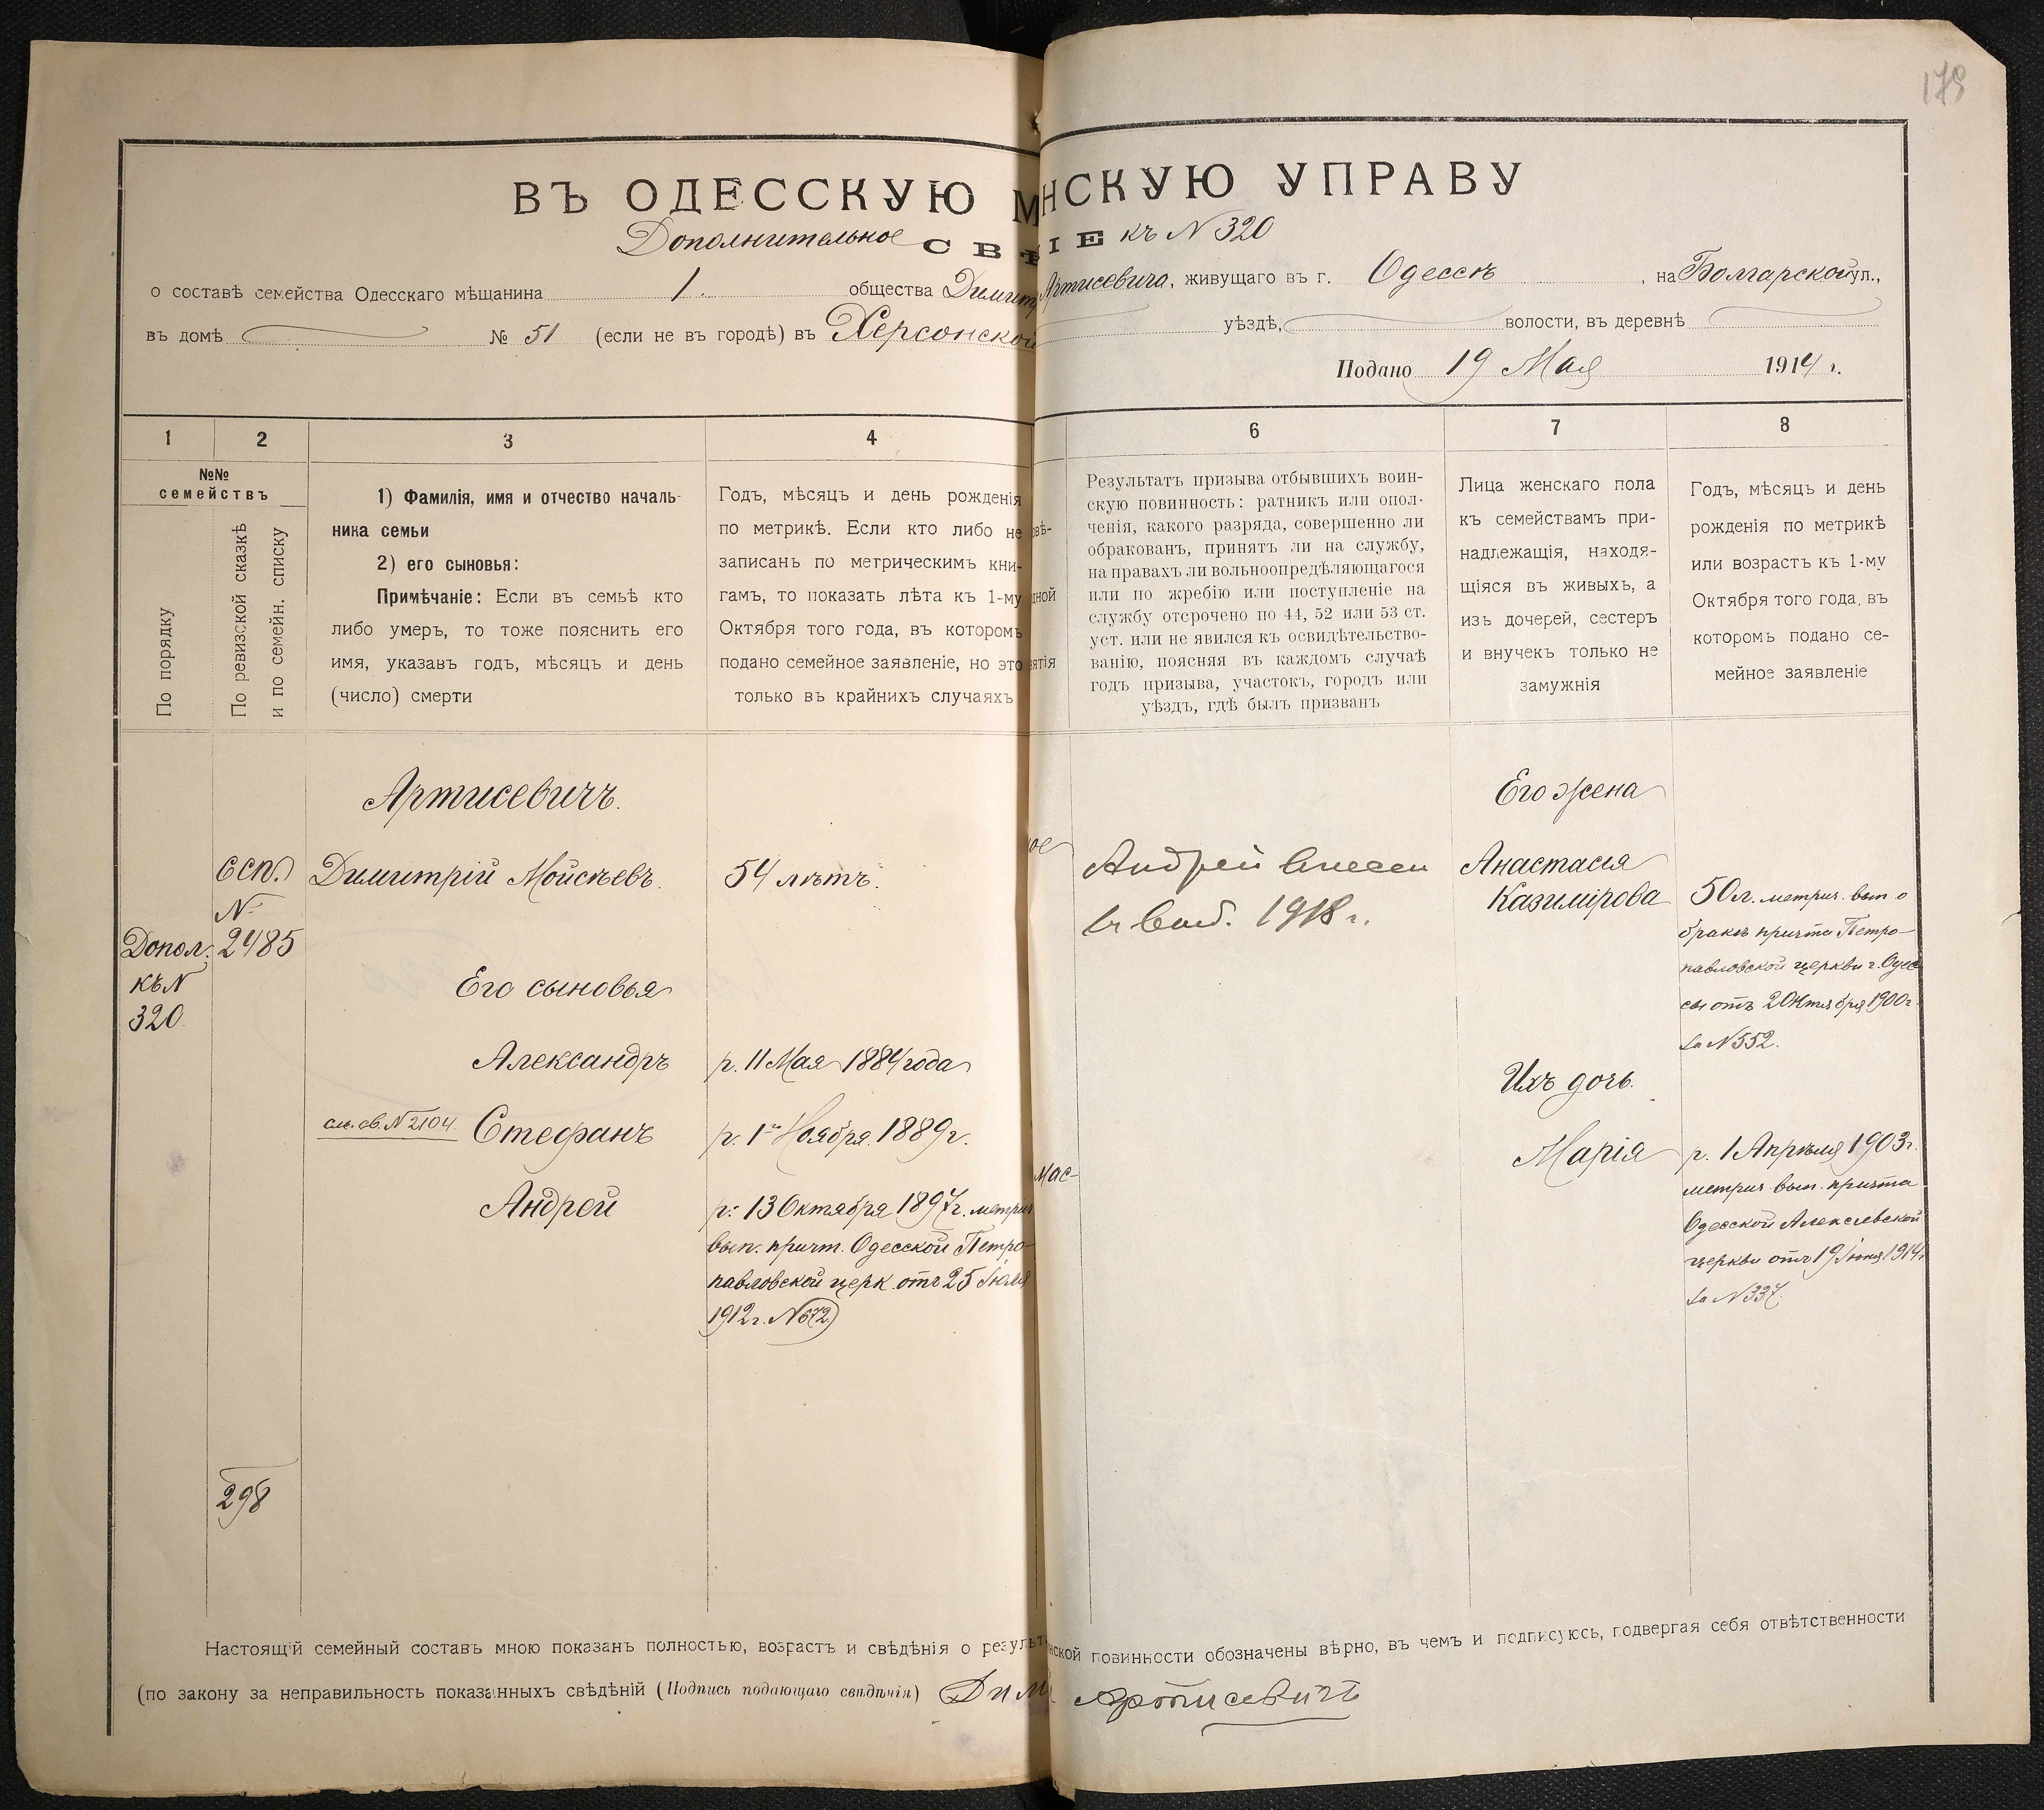 178
ВЪ ОДЕССКУЮ М НСКУЮ УПРАВУ
Дополнительное СВѢ IЕ къ N 320
о составѣ семейства Одесскаго мѣщанина 1. общества Димит Артисевича, живущаго въ г. Одессѣ, на Болгарской ул.,
въ домѣ № 51 (если не въ городѣ) въ Херсонской уѣздѣ, волости, въ деревнѣ
Подано 19 Мая 1914 г.
1 2 3 4 6 7 8
№№
семействъ
По порядку
По ревизской сказкѣ
и по семейн. списку
1) Фамилія, имя и отчество началь-
ника семьи
2) его сыновья:
Примѣчаніе: Если въ семьѣ кто
либо умеръ, то тоже пояснить его
имя, указавъ годъ, мѣсяцъ и день
(число) смерти
Годъ, мѣсяцъ и день рожденія
по метрикѣ. Если кто либо не
записанъ по метрическимъ кни-
гамъ, то показать лѣта къ 1-му
Октября того года, въ которомъ
подано семейное заявленіе, но это
только въ крайнихъ случаяхъ
овѣ-
дной
ятія
Результатъ призыва отбывшихъ воин-
скую повинность: ратникъ или опол-
ченія, какого разряда, совершенно ли
обракованъ, принятъ ли на службу,
на правахъ ли вольноопредѣляющагося
или по жребію или поступленіе на
службу отсрочено по 44, 52 или 53 ст.
уст. или не явился къ освидѣтельство-
ванію, поясняя въ каждомъ случаѣ
годъ призыва, участокъ, городъ или
уѣздъ, гдѣ былъ призванъ
Лица женскаго пола
къ семействамъ при-
надлежащія, находя-
щіяся въ живыхъ, а
изъ дочерей, сестеръ
и внучекъ только не
замужнія
Годъ, мѣсяцъ и день
рожденія по метрикѣ
или возрастъ къ 1-му
Октября того года, въ
которомъ подано се-
мейное заявленіе
Допол.
къ N
320.
ссп.
N
2485
298
Артисевичъ.
Димитрій Мойсѣевъ.
54 лѣтъ.
Его сыновья
Александръ
р. 11 Мая 1884 года
см. св. N 2104. Стефанъ
р. 1го Ноября 1889 г.
Андрей
р. 13 Октября 1897 г. метрич
вып. причт. Одесской Петро-
павловской церк. отъ 25 Іюля
1912 г. N 672
ое
мас-
Андрей внесен
въ 1918 г.
Его жена
Анастасія
Казимірова
50 л. метрич. вып о
бракѣ причта Петро-
павловской церкви г. Одес
сы отъ 2 Октября 1900 г.
за N 552.
Ихъ дочь.
Марія
р. 1 Апрѣля 1903 г.
метрич вып. причта
Одесской Алексіевской
церкви отъ 19 Іюня 1914 г
за N 337.
Настоящій семейный составъ мною показанъ полностью, возрастъ и свѣдѣнія о резуль нской повинности обозначены вѣрно, въ чемъ и подписуюсь, подвергая себя отвѣтственности
(по закону за неправильность показанныхъ свѣдѣній (Подпись подающаго свѣдѣнія) Дим Артисевичъ